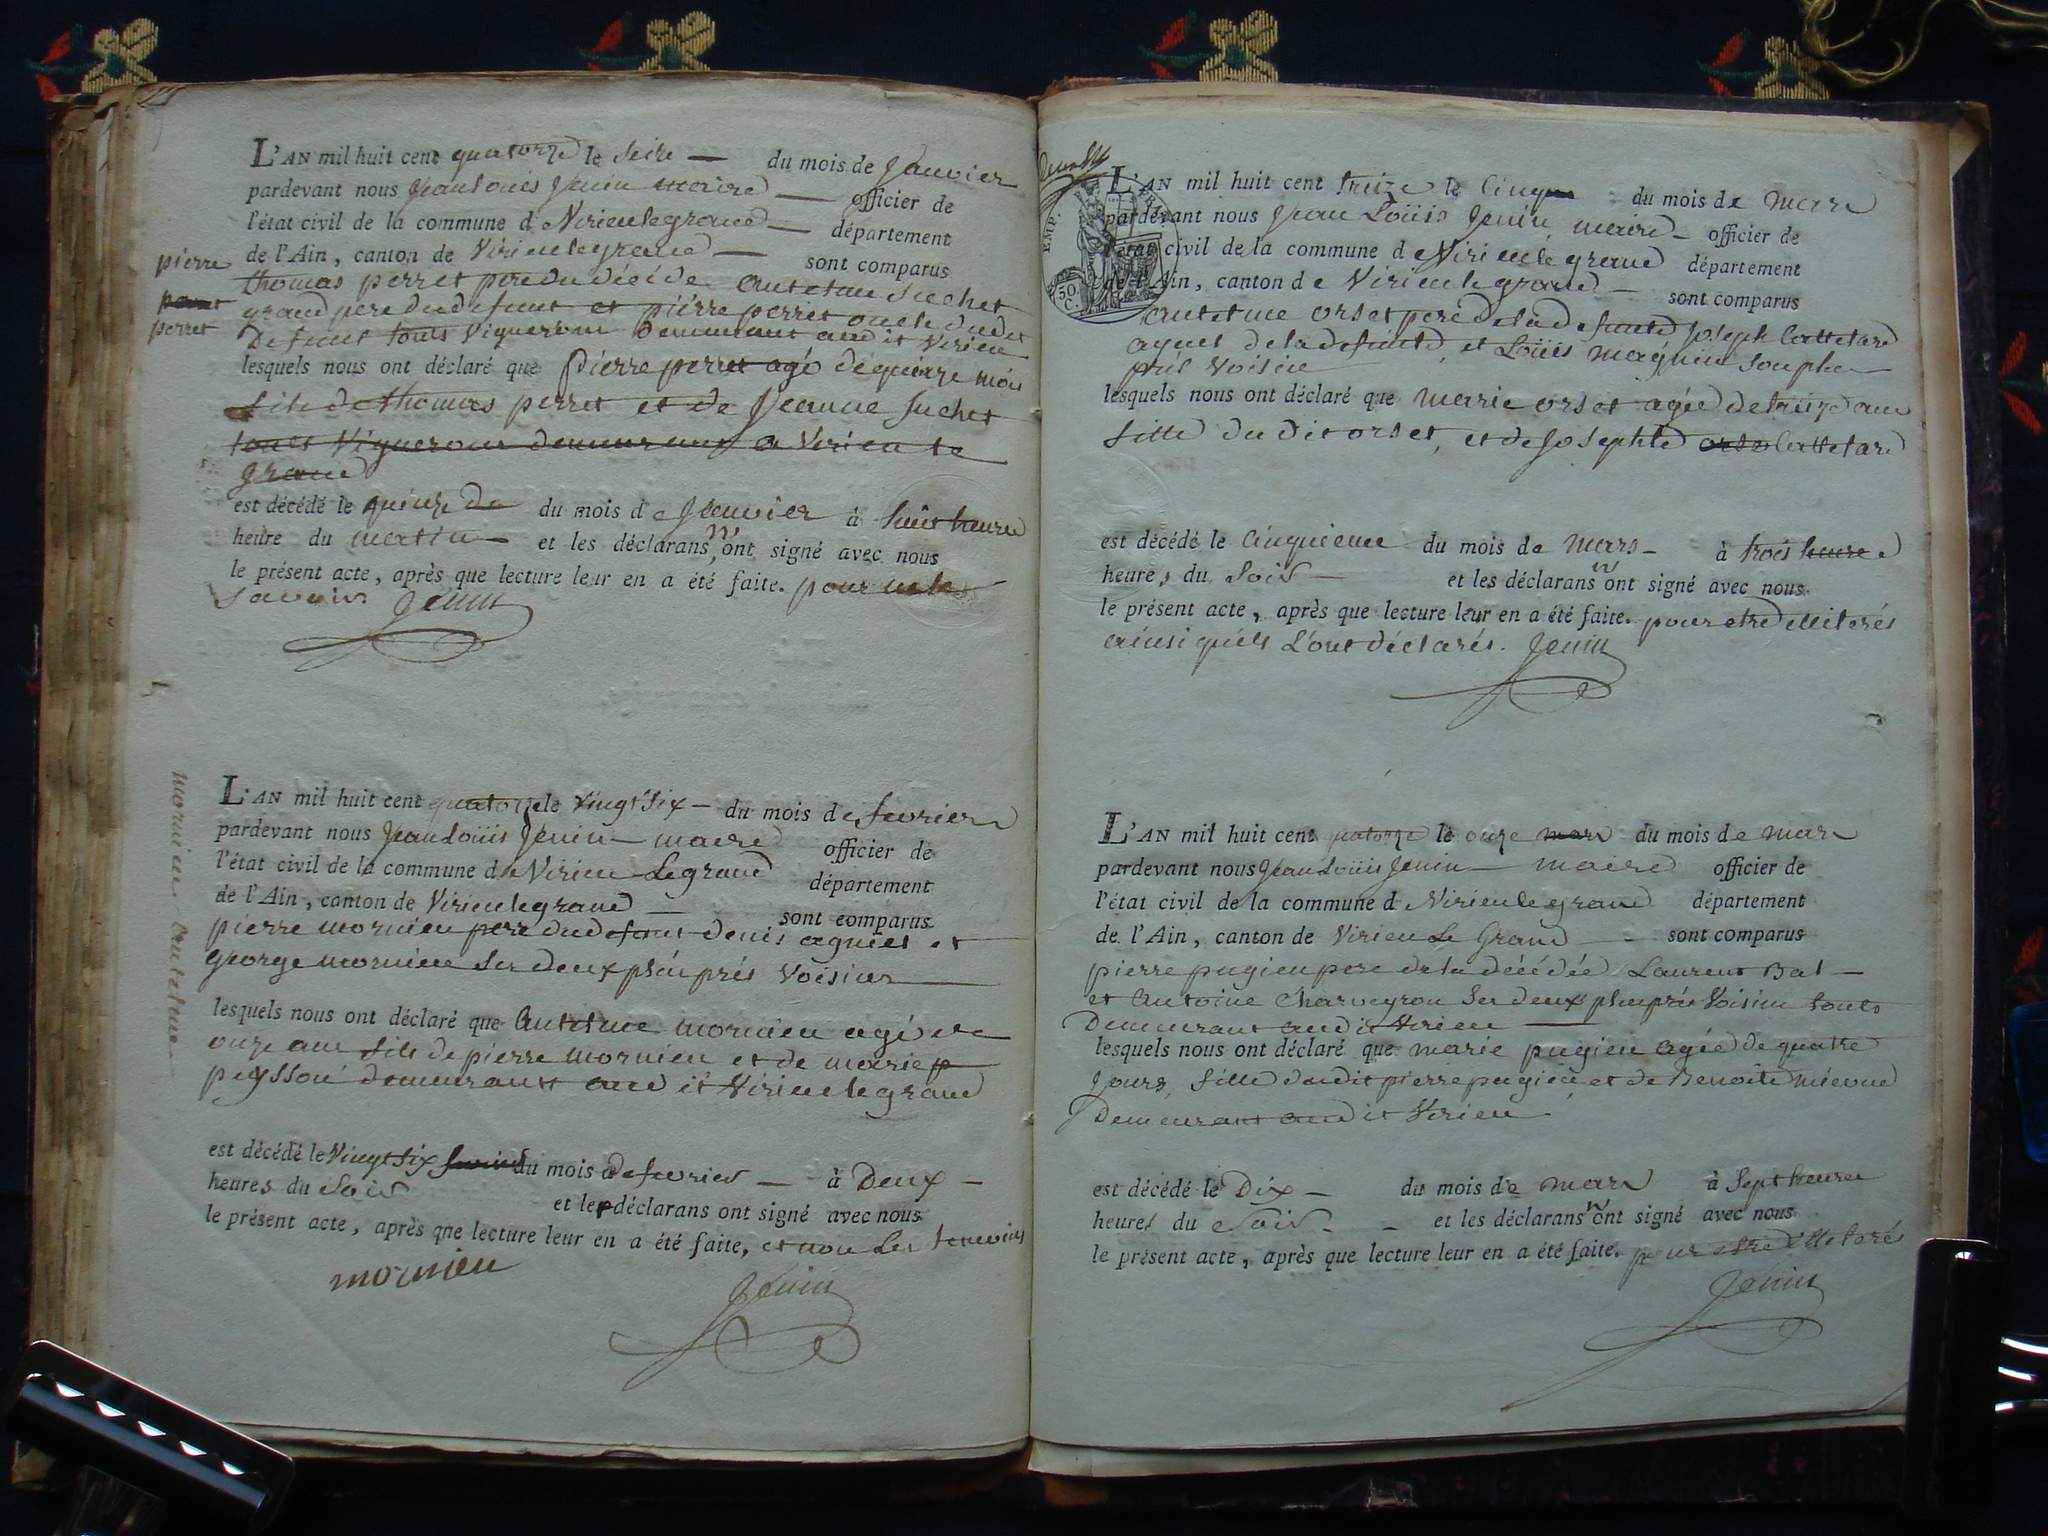 L'AN mil huit cent quatorze le seize — du mois de Janvier
pardevant nous Jean Louis Jenin maire — officier de
l'état civil de la commune d Virieu le grand — département
de l'Ain, canton de Virieu le grand — sont comparus
pierre
perret
thomas perret pere du décédé antelme suchet
grand pere du defunt et pierre perret oncle dudit
Defunt touts Vignerons Demeurant audit Virieu
lesquels nous ont déclaré que pierre perret agé de quinze mois
fils de thomas perret et de Jeanne suchet
touts Vignerons demeurant a Virieu le
grand
est décédé le quinze de du mois d e Janvier à huit heures
heure du matin — et les déclarans n'ont signé avec nous
le présent acte, après que lecture leur en a été faite. pour ne le
savoir Jenin
mornieu antelme
L'AN mil huit cent quatorze le vingt six — du mois de fevrier
pardevant nous Jean Louis Jenin — maire officier de
l'état civil de la commune de Virieu Le grand département
de l'Ain, canton de Virieu le grand — sont comparus
pierre mornieu pere du defunt denis agniel et
george mornieu ses deux plus prés Voisins
lesquels nous ont déclaré que antelme mornieu agé de
onze ans fils de pierre mornieu et de marie
peysson demeurant aud it Virieu le grand
est décédé le vingt six du mois de fevrier — à Deux —
heures du soir et les déclarans ont signé avec nous
le présent acte, après que lecture leur en a été faite, et non Les temoins
mornieu
Jenin
EMP.
50
C.
L'AN mil huit cent treize le Cinq du mois de mars
pardevant nous Jean Loüis Jenin maire — officier de
l'état civil de la commune d Virieu le grand département
de l'Ain, canton de Virieu le grand — sont comparus
antelme orset pere de la defunte Joseph Cattelard
ayeul de la defunte, et Loüis magnin son plus
prés Voisin
lesquels nous ont déclaré que marie orset agée de treize ans
fille du dit orset, et de Josephte Cattelard
est décédé le Cinquieme du mois de mars — à trois heure
heures du soir — et les déclarans n'ont signé avec nous
le présent acte, après que lecture leur en a été faite. pour etre illiterés
ainsi qu'ils L'ont déclarés. Jenin
L'AN mil huit cent quatorze le onze mars du mois de mars
pardevant nous Jean Loüis Jenin — maire officier de
l'état civil de la commune d Virieu le grand département
de l'Ain, canton de Virieu Le Grand — sont comparus
pierre pugieu pere de la décédée Laurent Bal —
et Antoine Charveyron ses deux plus prés Voisins touts
Demeurant audit Virieu —
lesquels nous ont déclaré que marie pugieu agée de quatre
Jours, fille dudit pierre pugieu et de Benoite
Demeurant audit Virieu
est décédé le Dix — du mois de mars à Sept heures
heures du soir — et les déclarans n'ont signé avec nous
le présent acte, après que lecture leur en a été faite. pour etre illiterés
Jenin